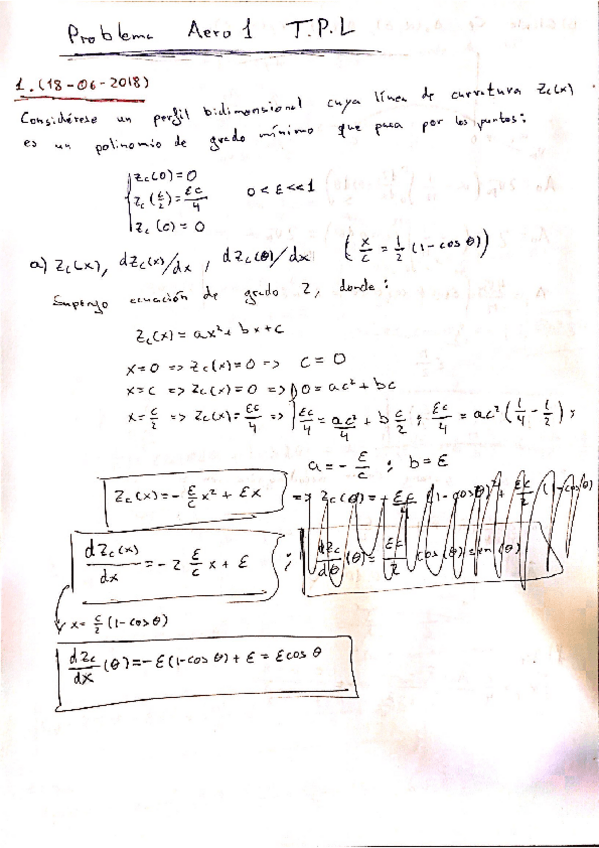 Problema Aero 1 T.P.L
1. (18-06-2018)
Considérese un perfil bidimensional cuya línea de curvatura Zc(x)
es un polinomio de grado mínimo que pasa por los puntos:
Zc(0)=0
Zc(c/2)=εc/4 0<ε<<1
Zc(c)=0
a) Zc(x), dZc(x)/dx, dZc(θ)/dx (x/c = 1/2 (1-cos θ))
Supongo ecuación de grado 2, donde:
Zc(x)=ax²+bx+c
x=0 => Zc(x)=0 => c=0
x=c => Zc(x)=0 => 0=ac²+bc
x=c/2 => Zc(x)=εc/4 => εc/4 = ac²/4 + b c/2 ; εc/4 = ac²(1/4 - 1/2);
a=-ε/c ; b=ε
Zc(x)=-ε/c x²+εx => Zc(θ)=-εc/4 (1-cosθ)²+εc/2 (1-cosθ)
dZc(x)/dx = -2 ε/c x+ε ; dZc/dθ (θ)=εc/2 cos(θ) sen(θ)
x=c/2 (1-cosθ)
dZc/dx (θ)=-ε(1-cos θ)+ε = εcos θ